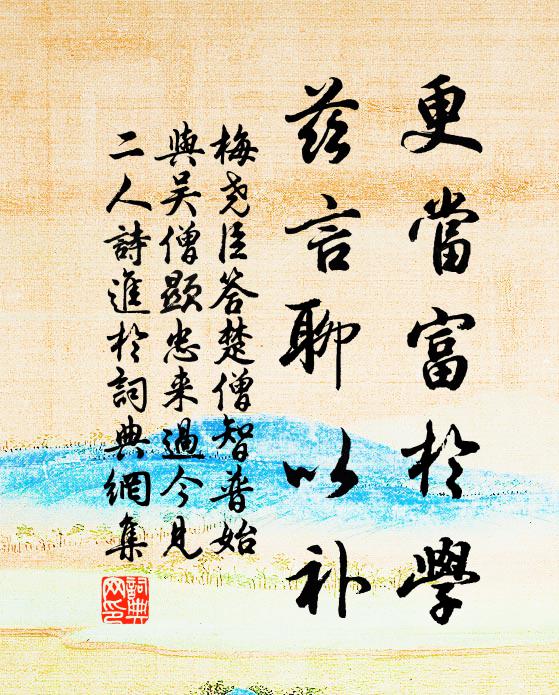 更當富於學
茲言聊以补
梅尧臣答楚僧智普始
與吴僧顯忠来過今见
二人詩進於詞典網集
詞典
网印